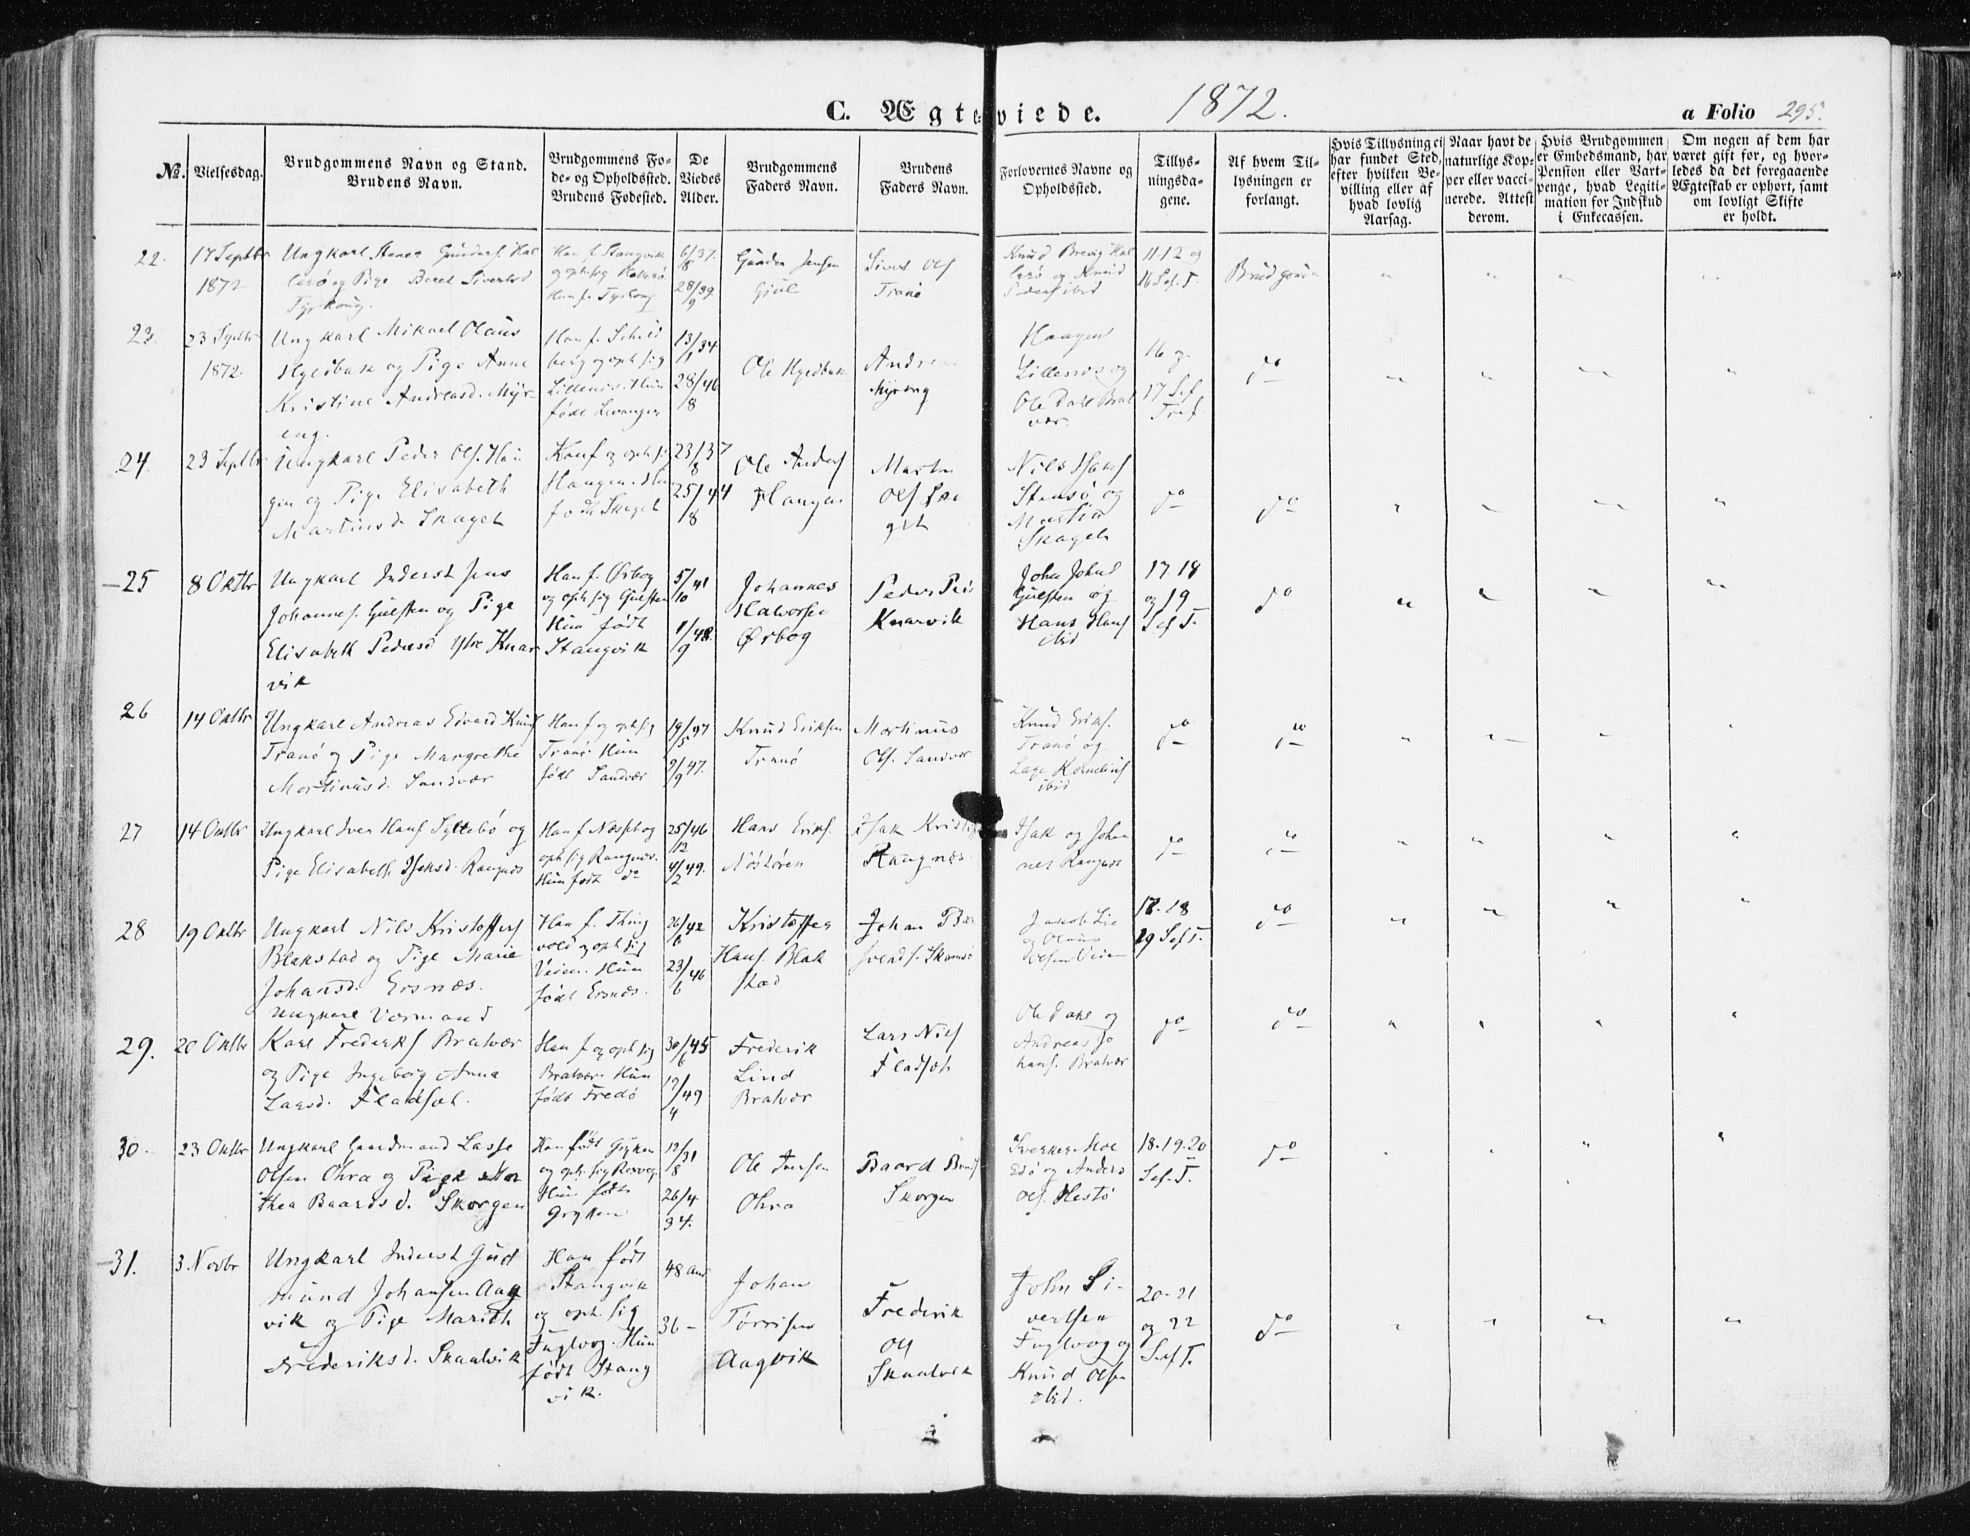 C. Ægteviede. 1872. a Folio 295.
№.
Vielsesdag.
Brudgommens Navn og Stand.
Brudens Navn.
Brudgommens Fo-
de- og Opholdssted.
Brudens Fødested.
De
Viedes
Alder.
Brudgommens
Faders Navn.
Brudens
Faders Navn.
Forlovernes Navne og
Opholdssted.
Tillys-
ningsda-
gene.
Af hvem Til-
lysningen er
forlangt.
Hvis Tillysning ei
har fundet Sted,
efter hvilken Be-
villing eller af
hvad lovlig
Aarsag.
Naar havt de
naturlige Kop-
per eller vacci-
nerede. Attest
derom.
Hvis Brudgommen
er Embedsmand, har
Pension eller Vart-
penge, hvad Legiti-
mation for Indskud
i Enkecassen.
Om nogen af dem har
været gift før, og hvor-
ledes da det foregaaende
Ægteskab er ophørt, samt
om lovligt Skifte
er holdt.
22.
17 Septbr
1872
Ungkarl
og Pige Beret Sivertsd
Han f. Stangvik
6/8 37.
28/9 39.
Gunder Jensen
Gjul
Sivert Ols
Tranø
Knud Brevig
og Knud
ibid
11 12 og
16 Sef. T.
Brudgom
23.
23 Septbr
1872.
Ungkarl Mikael Olaus
Hyldbak og Pige Anne
Kristine Andreasd. Myr-
eng.
og oph. sig
Lillenes. Hun
føde Levanger
13/1 34
28/8 46
Ole Hyldbak
Andreas
Myreng
Haagen
Lillenes og
Ole Dahl Brat
vær.
16 og
17 Sef.
Tref.
do
24.
23 Septbr
Ungkarl Peder Ols. Hau
gen og Pige Elisabeth
Martinsd. Skaget
Han f. og oph. sig
Haugen. Hun
født Skaget
23/8 37
25/8 44
Ole Anders
Haugen
Martin
Ols Ska
get
Nils Hans
Stensø og
Martin
Skaget
do
do
25
8 Oktbr
Ungkarl Inderst Jens
Johannes. Gulsten og Pige
Elisabeth Pedersd Ytre Knar
vik
Han f. Ørbog
og oph. sig Gulsten
Hun født
Stangvik
5/10 41
1/9 48.
Johannes
Halvorsen
Ørbog
Peder
Knarvik
John Johns
Gulsten og
Hans Hans
ibid
17. 18
og 19
Sef T.
do
26
14 Oktbr
Ungkarl Andreas Edvard Knuds
Tranø og Pige Margrethe
Martinusd. Sandvær
Han f. og oph. sig
Tranø. Hun
født Sandvær
19/5 47
9/9 47.
Knud Eriksen
Tranø
Martinus
Ols. Sandvær
Knud Eriks.
Tranø og
Lage Kornelius
ibid
do
do
27
14 Oktbr
Ungkarl Iver Hans Syltebø og
Pige Elisabeth Isaksd. Rangnæs
Han f. Næsset og
oph. sig Rangnæs.
Hun født do
25/12 46
4/2 49.
Hans Eriks.
Nøstøren
Isak
Rangnæs.
Isak og Johan
nes Rangnæs
do
do
28
19 Oktbr
Ungkarl Nils Kristoffers
Blakstad og Pige Marie
Johansd. Ersnæs.
Han f. Thing
vold og oph. sig
Veien. Hun
født Ersnæs.
26/6 42
23/6 46
Kristoffer
Hans Blak
stad
Johan
Svends.
Jakob Lie
og Olaus
Olsen Veien
17. 18
19 Sef T.
do
29.
20 Oktbr
Ungkarl Vormand
Karl Frederiks Bratvær
og Pige Ingeborg Anna
Larsd. Fladsæt.
Han f. og oph. sig
Bratvær. Hun
født Fredø
30/6 45
17/4 49
Frederik
Lind
Bratvær
Lars Nils
Fladsæt
Ole Dahl og
Andreas Jo
hans. Bratvær
do
do
30.
23 Oktbr
Ungkarl Gaardmand Lasse
Olsen Ohra og Pige Mar
thea Baardsd. Skorgen
Han født Gryten
og oph. sig
Hun født
Gryten
19/8 31
26/4
34.
Ole Jensen
Ohra
Baard
Skorgen
og Anders
Ols. Hestø
18. 19. 20
Sef. T.
do
31.
3 Novbr
Ungkarl Inderst Gud
mund Johansen Aag
vik og Pige Marith
Frederiksd. Skaalvik
Han født
Stangvik
og oph. sig
Fuglvog. Hun
født Stang
vik.
48 aar
36 –
Johan
Torrisen
Aagvik
Frederik
Ols
Skaalvik
John Si-
vertsen
Fuglvog og
Knud Olsen
ibid.
20. 21
og 22
Sef T.
do